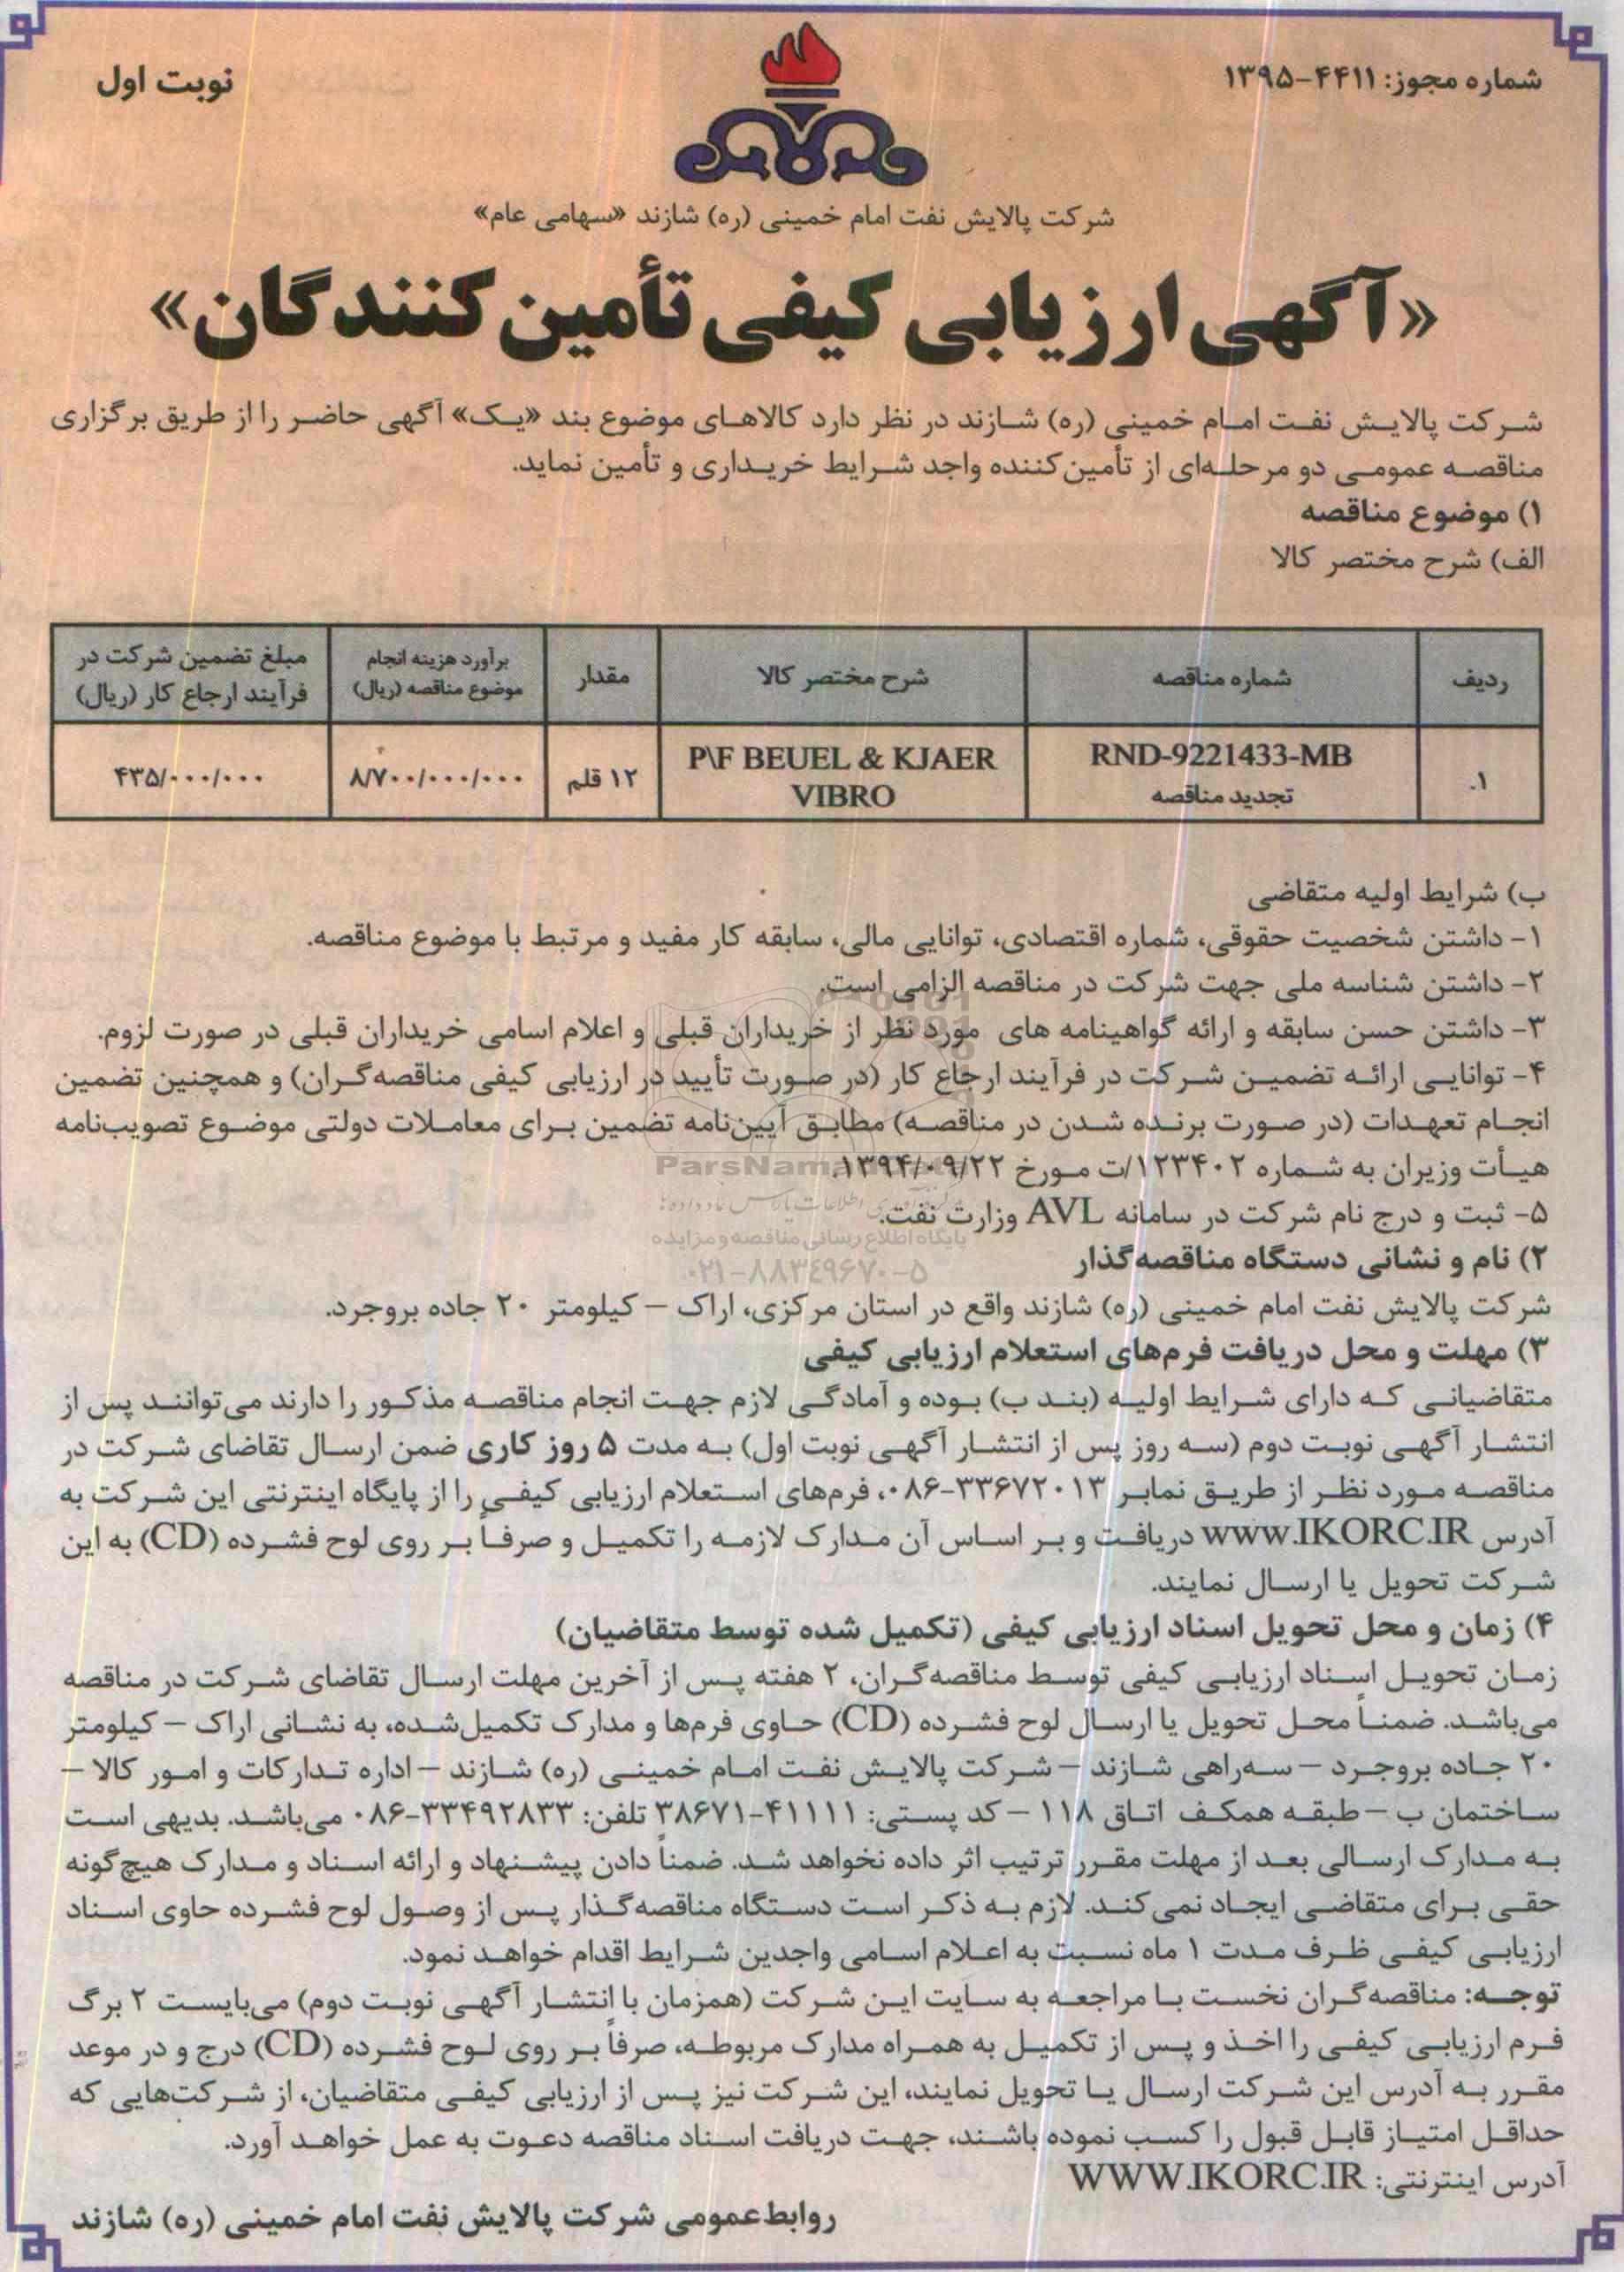 شماره مجوز: ۴۴۱۱-۱۳۹۵
نوبت اول
شرکت پالایش نفت امام خمینی (ره) شازند «سهامی عام»
«آگهی ارزیابی کیفی تأمین کنندگان»
شرکت پالایش نفت امام خمینی (ره) شازند در نظر دارد کالاهای موضوع بند «یک» آگهی حاضر را از طریق برگزاری
مناقصه عمومی دو مرحله‌ای از تأمین کننده واجد شرایط خریداری و تأمین نماید.
۱) موضوع مناقصه
الف) شرح مختصر کالا
ردیف شماره مناقصه شرح مختصر کالا مقدار برآورد هزینه انجام موضوع مناقصه (ریال) مبلغ تضمین شرکت در فرآیند ارجاع کار (ریال)
۱. RND-9221433-MB تجدید مناقصه P\F BEUEL & KJAER VIBRO ۱۲ قلم ۸/۷۰۰/۰۰۰/۰۰۰ ۴۳۵/۰۰۰/۰۰۰
ب) شرایط اولیه متقاضی
۱- داشتن شخصیت حقوقی، شماره اقتصادی، توانایی مالی، سابقه کار مفید و مرتبط با موضوع مناقصه.
۲- داشتن شناسه ملی جهت شرکت در مناقصه الزامی است.
۳- داشتن حسن سابقه و ارائه گواهینامه های مورد نظر از خریداران قبلی و اعلام اسامی خریداران قبلی در صورت لزوم.
۴- توانایی ارائه تضمین شرکت در فرآیند ارجاع کار (در صورت تأیید در ارزیابی کیفی مناقصه‌گران) و همچنین تضمین
انجام تعهدات (در صورت برنده شدن در مناقصه) مطابق آیین‌نامه تضمین برای معاملات دولتی موضوع تصویب‌نامه
هیأت وزیران به شماره ۱۲۳۴۰۲/ت مورخ ۱۳۹۴/۰۹/۲۲.
ParsNamadData
۵- ثبت و درج نام شرکت در سامانه AVL وزارت نفت.
پایگاه اطلاع رسانی مناقصه و مزایده
۲) نام و نشانی دستگاه مناقصه‌گذار
۰۲۱-۸۸۳۴۹۶۷۰-۵
شرکت پالایش نفت امام خمینی (ره) شازند واقع در استان مرکزی، اراک – کیلومتر ۲۰ جاده بروجرد.
۳) مهلت و محل دریافت فرم‌های استعلام ارزیابی کیفی
متقاضیانی که دارای شرایط اولیه (بند ب) بوده و آمادگی لازم جهت انجام مناقصه مذکور را دارند می‌توانند پس از
انتشار آگهی نوبت دوم (سه روز پس از انتشار آگهی نوبت اول) به مدت ۵ روز کاری ضمن ارسال تقاضای شرکت در
مناقصه مورد نظر از طریق نمابر ۳۳۶۷۲۰۱۳-۰۸۶، فرم‌های استعلام ارزیابی کیفی را از پایگاه اینترنتی این شرکت به
آدرس www.IKORC.IR دریافت و بر اساس آن مدارک لازمه را تکمیل و صرفاً بر روی لوح فشرده (CD) به این
شرکت تحویل یا ارسال نمایند.
۴) زمان و محل تحویل اسناد ارزیابی کیفی (تکمیل شده توسط متقاضیان)
زمان تحویل اسناد ارزیابی کیفی توسط مناقصه‌گران، ۲ هفته پس از آخرین مهلت ارسال تقاضای شرکت در مناقصه
می‌باشد. ضمناً محل تحویل یا ارسال لوح فشرده (CD) حاوی فرم‌ها و مدارک تکمیل‌شده، به نشانی اراک – کیلومتر
۲۰ جاده بروجرد – سه‌راهی شازند – شرکت پالایش نفت امام خمینی (ره) شازند – اداره تدارکات و امور کالا –
ساختمان ب – طبقه همکف اتاق ۱۱۸ – کد پستی: ۴۱۱۱۱-۳۸۶۷۱ تلفن: ۳۳۴۹۲۸۳۳-۰۸۶ می‌باشد. بدیهی است
به مدارک ارسالی بعد از مهلت مقرر ترتیب اثر داده نخواهد شد. ضمناً دادن پیشنهاد و ارائه اسناد و مدارک هیچ‌گونه
حقی برای متقاضی ایجاد نمی‌کند. لازم به ذکر است دستگاه مناقصه‌گذار پس از وصول لوح فشرده حاوی اسناد
ارزیابی کیفی ظرف مدت ۱ ماه نسبت به اعلام اسامی واجدین شرایط اقدام خواهد نمود.
توجه: مناقصه‌گران نخست با مراجعه به سایت این شرکت (همزمان با انتشار آگهی نوبت دوم) می‌بایست ۲ برگ
فرم ارزیابی کیفی را اخذ و پس از تکمیل به همراه مدارک مربوطه، صرفاً بر روی لوح فشرده (CD) درج و در موعد
مقرر به آدرس این شرکت ارسال یا تحویل نمایند، این شرکت نیز پس از ارزیابی کیفی متقاضیان، از شرکت‌هایی که
حداقل امتیاز قابل قبول را کسب نموده باشند، جهت دریافت اسناد مناقصه دعوت به عمل خواهد آورد.
آدرس اینترنتی: WWW.IKORC.IR
روابط‌عمومی شرکت پالایش نفت امام خمینی (ره) شازند